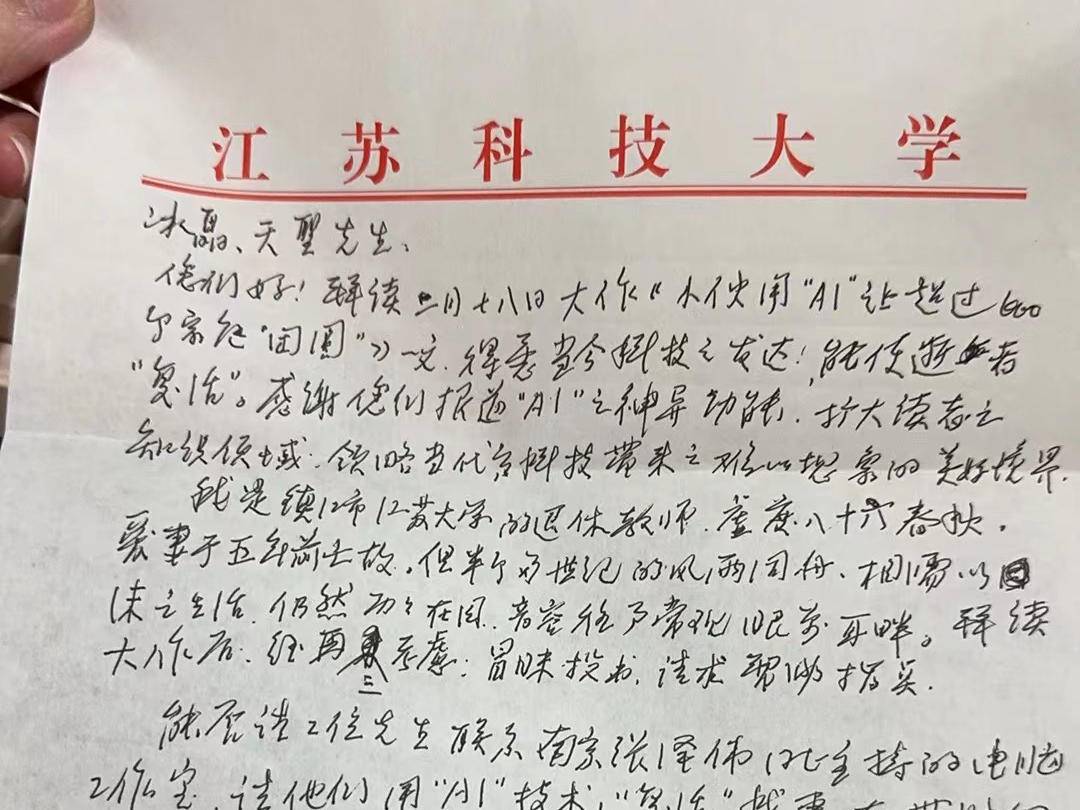 江苏科技大学
冰晶、天聖先生:
您们好!拜读二月十八日大作《小伙用“AI”让超过600
个家庭“团圆”》一文,得悉当今科技之发达!能使逝者
“复活”。感谢您们报道“AI”之神异功能,扩大读者之
知识领域,领略当代高科技带来之难以想象的美好境界.
我是镇江市江苏大学的退休教师,虚度八十六春秋.
爱妻于五年前去故,但半个多世纪的风雨同舟、相濡以
沫之生活,仍然历历在目,音容往事常现眼前耳畔。拜读
大作后,经再三考虑,冒昧投书,请求帮助指头.
能否请二位先生联系南京张泽伟所主持的电脑
工作室,请他们用“AI”技术,“复活”我妻